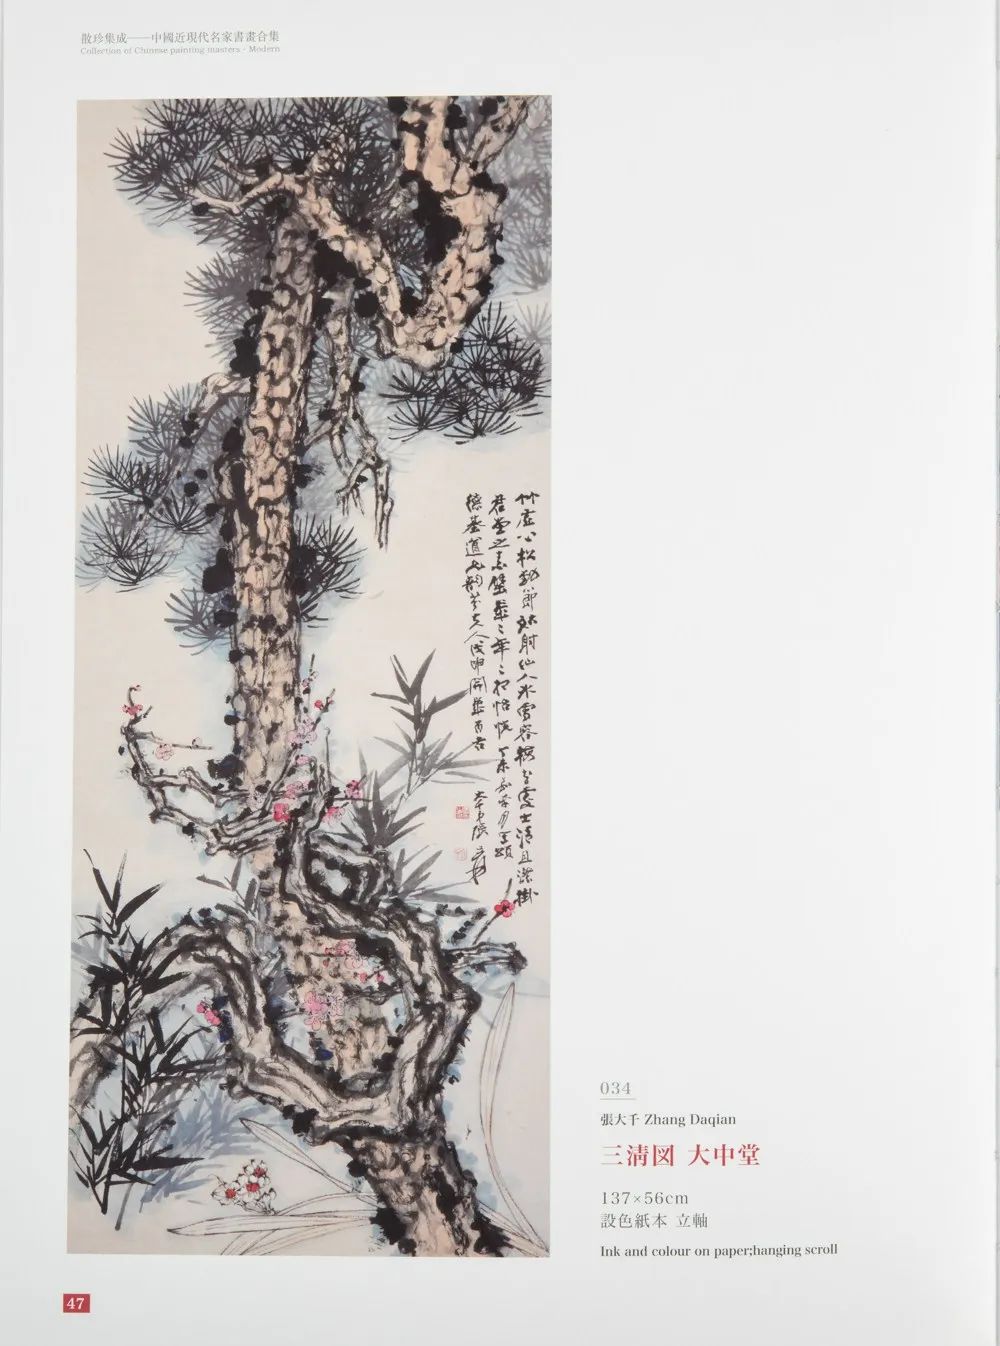 散珍集成——中國近現代名家書畫合集
Collection of Chinese painting masters · Modern
竹虛心松勁節射仙人冰雪容梅兮處士清且潔掛
君堂之素壁歲〻年〻相怡悅 丁未嘉平月寫頌
德基道兄韻芬夫人戊申開歲百吉
大千弟張爰
034
張大千 Zhang Daqian
三清図 大中堂
137×56cm
設色紙本 立軸
Ink and colour on paper;hanging scroll
47